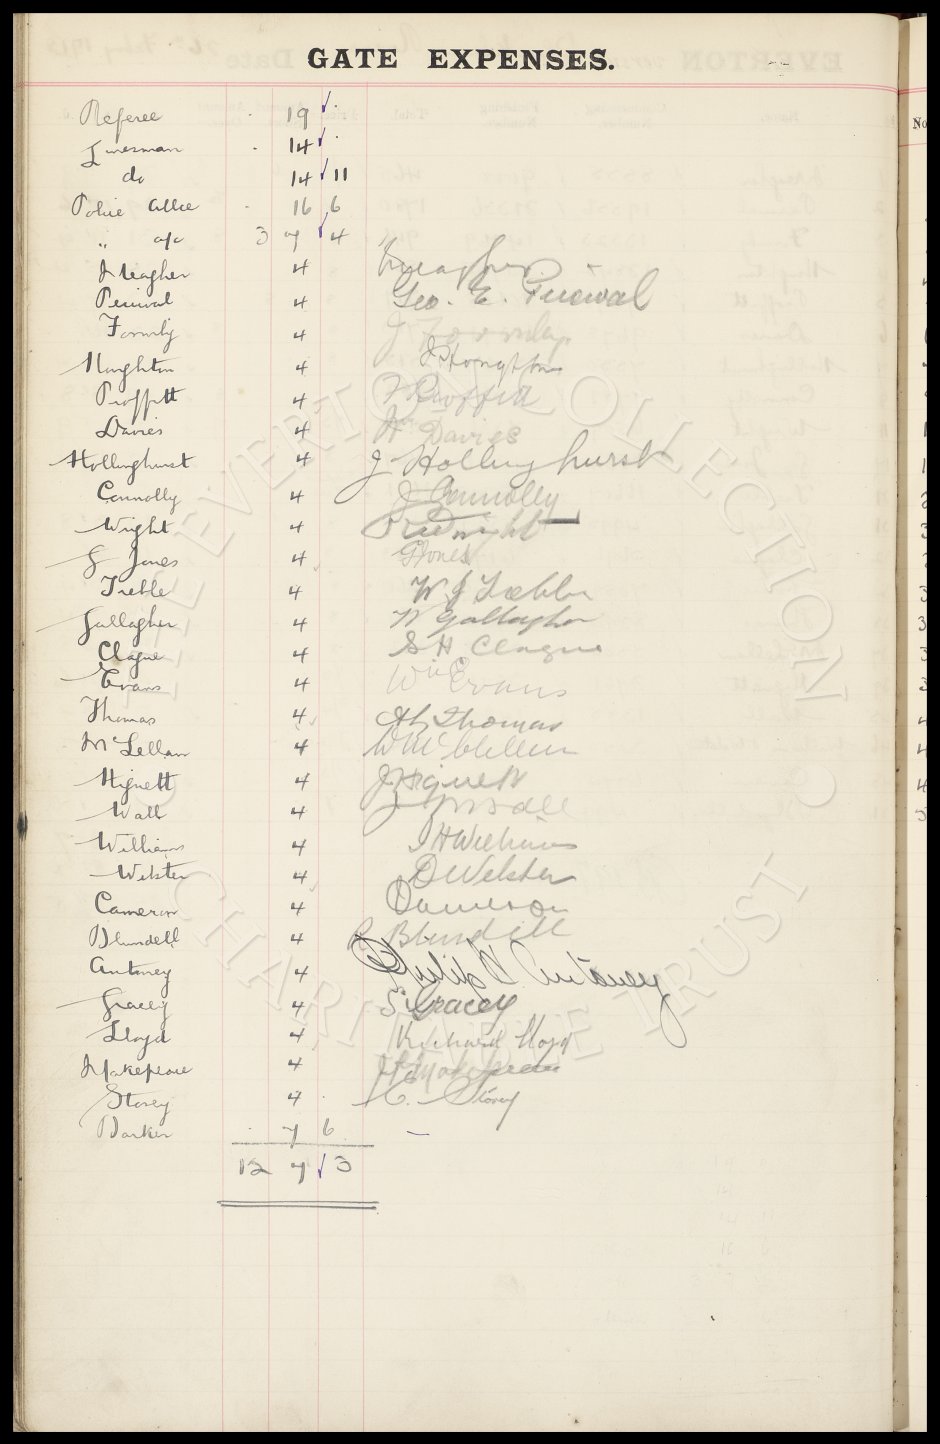 GATE EXPENSES.
Referee . 19 .
Linesman . 14 .
do 14 11
Police Allce . 16 6
" a/c 3 7 4
Meagher 4 Meagher
Percival 4 Geo. E. Percival
Formby 4 J Formby
Houghton 4 J Houghton
Proffitt 4 Proffitt
Davies 4 Wm Davies
Hollinghurst 4 J. Hollinghurst
Connolly 4 J Connolly
Wright 4 Wright
G Jones 4 G Jones
Treble 4 W J Treble
Gallagher 4 W Gallagher
Clague 4 S H Clague
Evans 4 Wm Evans
Thomas 4 Thomas
McLellan 4 W McLellan
Hignett 4 J Hignett
Wall 4
Williams 4 J H Williams
Webster 4 D Webster
Cameron 4 Cameron
Blundell 4 Blundell
Antoney 4 Philip Antoney
Gracey 4 S Gracey
Lloyd 4 Richard Lloyd
Makepeace 4 Makepeace
Storey 4 C. Storey
Barker . 7 6 —
12 7 3
THE EVERTON COLLECTION CHARITABLE TRUST